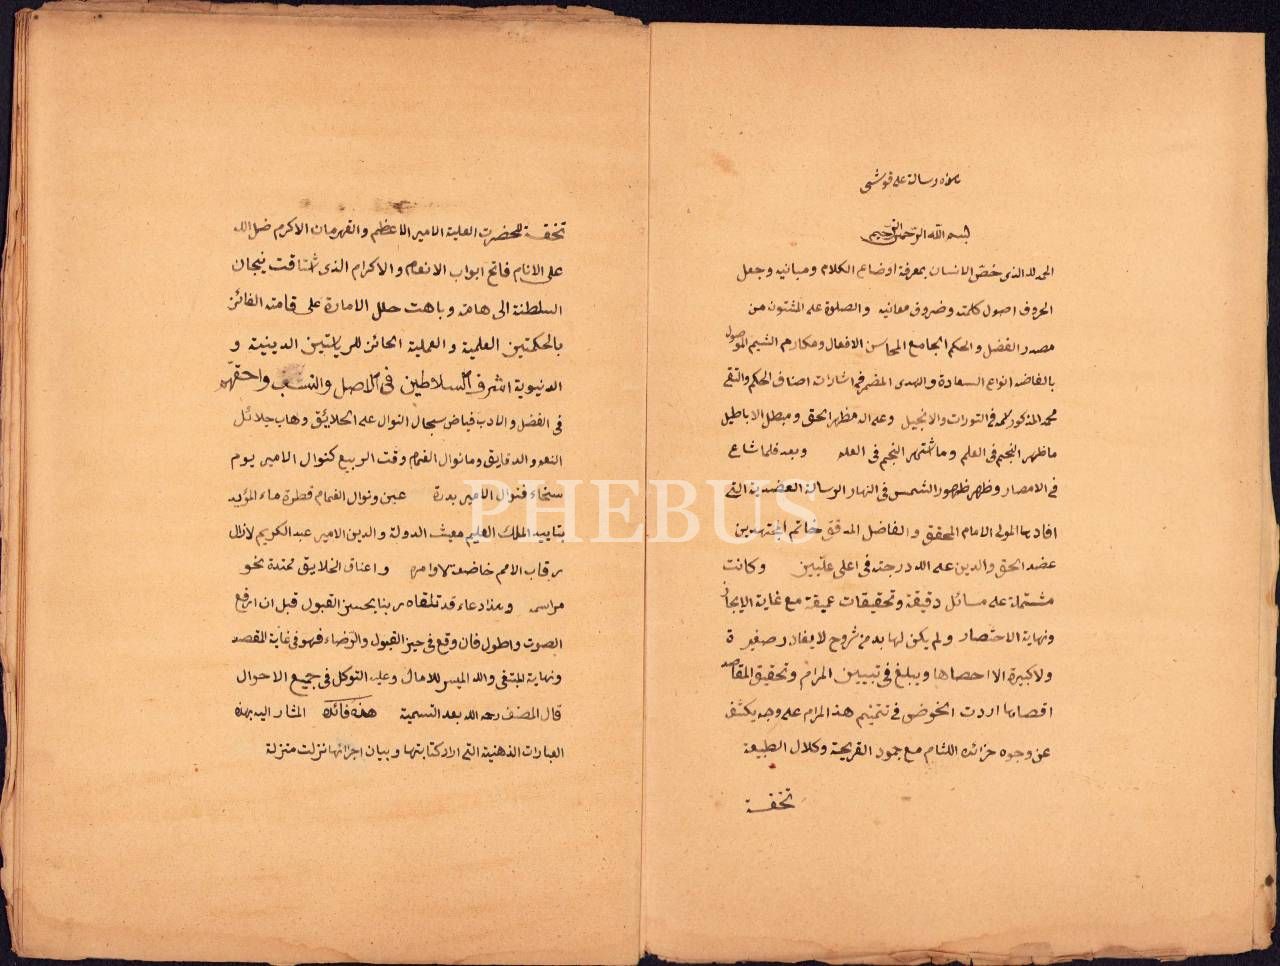 هذه رسالة على قوشجى
بسم الله الرحمن الرحيم
الحمد لله الذى خص الانسان بمعرفة اوضاع الكلام ومبانيه وجعل
الحروف اصول كلمته وضروف معانيه والصلوة على المشتق من
مصدر الفضل والحكم الجامع المحاسن الافعال ومكارم الشيم الموصول
بالفاضه انواع السعادة والهدى المضمر فى اشارات اصناف الحكم والتقى
محمد المذكور فى التورات والانجيل وعلى اله مظهر الحق ومبطل الاباطيل
ما ظهر النجم فى الظلم وما اشتهر النجم فى العلم وبعد فلما شاع
فى الامصار وظهر ظهور الشمس فى النهار الرسالة العضدية التى
افادها المولى الامام المحقق والفاضل المدقق خاتم المجتهدين
عضد الحق والدين على الله درجته فى اعلى عليين وكانت
مشتملة على مسائل دقيقة وتحقيقات عميقة مع غاية الايجاز
ونهاية الاختصار ولم يكن لها بد من شروح لا يغادر صغيرة
ولا كبيرة الا احصاها ويبلغ فى تبيين المرام وتحقيق المقاصد
اقصاها اردت الخوض فى تتميم هذا المرام على وجه يكشف
عن وجوه خرائده اللثام مع جمود القريحة وكلال الطبيعة
تحفة
تحفة للحضرت العلية الامير الاعظم والقهرمان الاكرم ضل الله
على الانام فاتح ابواب الانعام والاكرام الذى اشتاقت تيجان
السلطنة الى هامة وباهت حلل الامارة على قامته الفائز
بالحكمتين العلمية والعملية الحائز للرياستين الدينية و
الدنيوية اشرف السلاطين فى الاصل والنسب واحقهم
فى الفضل والادب فياض سجال النوال على الخلائق وهاب جلائل
النعم والدقايق وما نوال الغمام وقت الربيع كنوال الامير يوم
سخاء فنوال الامير بدرة عين ونوال الغمام قطرة ماء المؤيد
بتاييد الملك العليم مغيث الدولة والدين الامير عبد الكريم لازال
رقاب الامم خاضعة لاوامره واعناق الخلايق ممتدة نحو
مراسمه وهذا دعاء قد تلقاه ربنا بحسن القبول قبل ان ارفع
الصوت واطول فان وقع فى حيز القبول والرضاء فهو فى غاية المقصد
ونهاية المبتغى والله الميسر للامال وعليه التوكل فى جميع الاحوال
قال المصنف رحمه الله بعد التسمية هذه فائدة المشار اليه بهذه
العبارات الذهنية التى اراد كتابتها وبيان اجزائها نزلت منزلة
PHEBUS